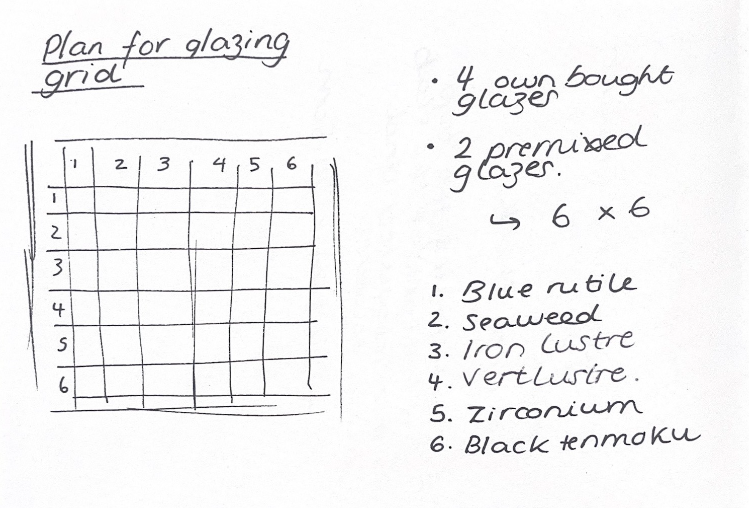 Plan for glazing
grid
1 2 3 4 5 6
1
2
3
4
5
6
• 4 own bought
glazes
• 2 premixed
glazes.
↳ 6 x 6
1. Blue rutile
2. Seaweed
3. Iron Lustre
4. Vertlustre.
5. Zirconium
6. Black tenmoku